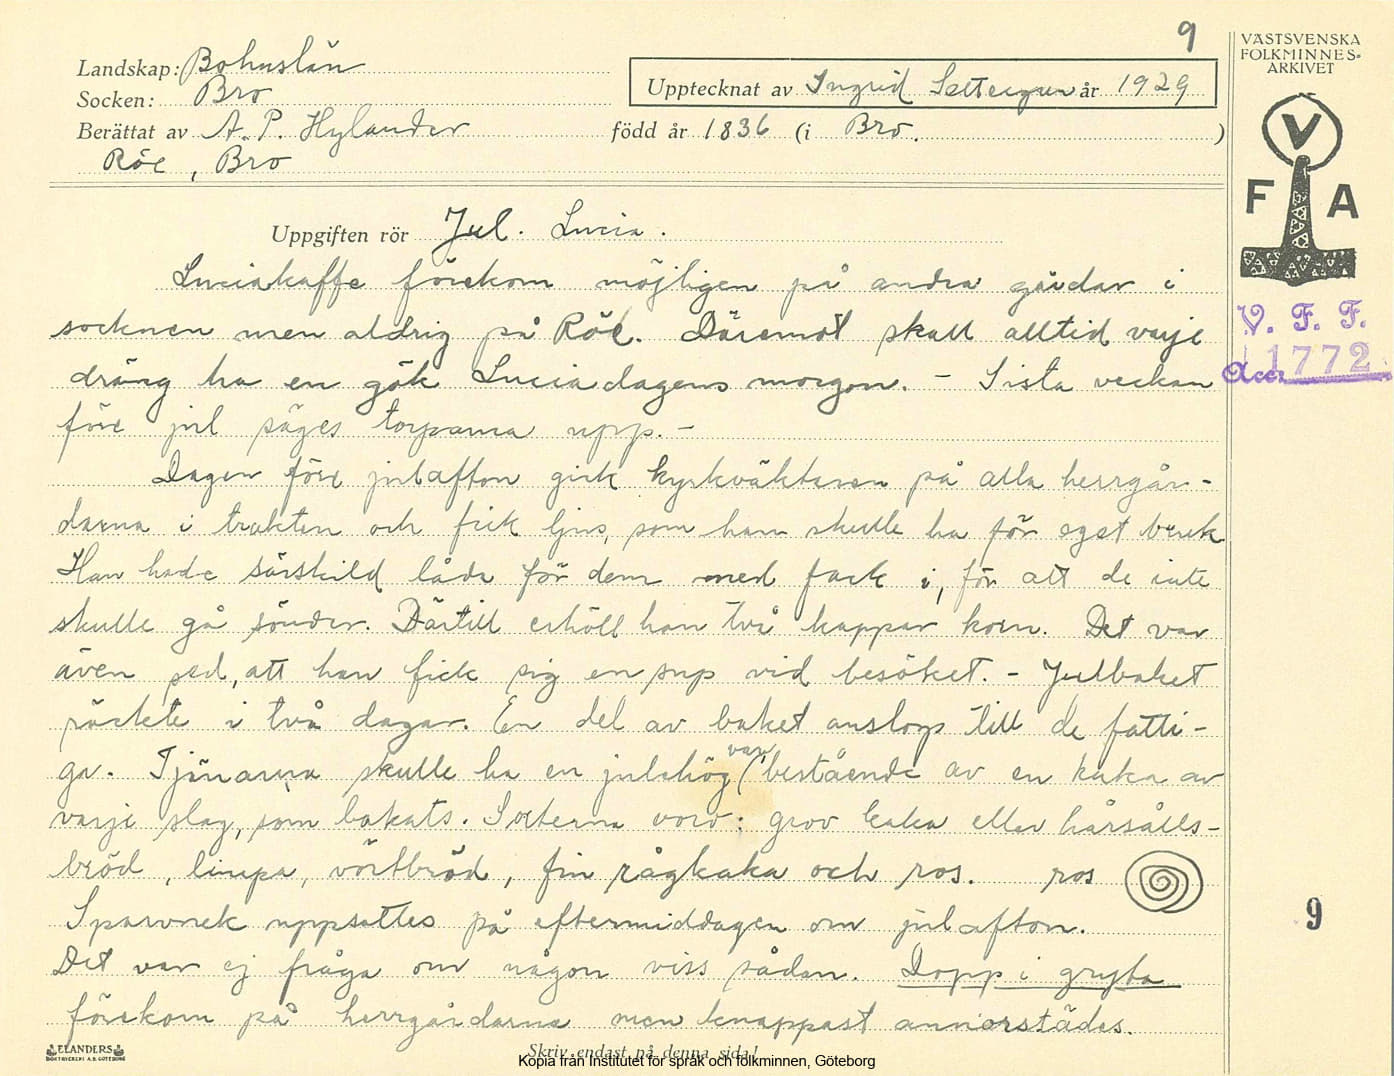 9
Landskap: Bohuslän
Socken: Bro
Upptecknat av Ingrid år 1929
Berättat av A. P. Hylander född år 1836 (i Bro. )
Röe, Bro
VÄSTSVENSKA
FOLKMINNES-
ARKIVET
V
F A
V. F. F.
Acc. 1772
Uppgiften rör Jul. Lucia.
Luciakaffe förekom möjligen på andra gårdar i
socknen men aldrig på Röe. Däremot skall alltid varje
dräng ha en gök Luciadagens morgon. - Sista veckan
före jul säges torparna upp. -
Dagen före julafton gick kyrkväktaren på alla herrgår-
darna i trakten och fick ljus, som han skulle ha för eget bruk
Han hade särskild låda för dem med fack i, för att de inte
skulle gå sönder. Därtill erhöll han två kappar korn. Det var
även sed, att han fick sig en sup vid besöket. - Julbaket
räckte i två dagar. En del av baket anslogs till de fatti-
ga. Tjänarna skulle ha en julahög var, bestående av en kaka av
varje slag, som bakats. Sorterna voro: grov kaka eller hårsålls-
bröd, limpa, vörtbröd, fin rågkaka och ros. ros
Sparvnek uppsattes på eftermiddagen om julafton.
Det var ej fråga om någon viss sådan. Dopp i gryta
förekom på herrgårdarna men knappast annorstädes.
9
ELANDERS
BOKTRYCKERI A.B. GÖTEBORG
Skriv endast på denna sida!
Kopia från Institutet för språk och folkminnen, Göteborg